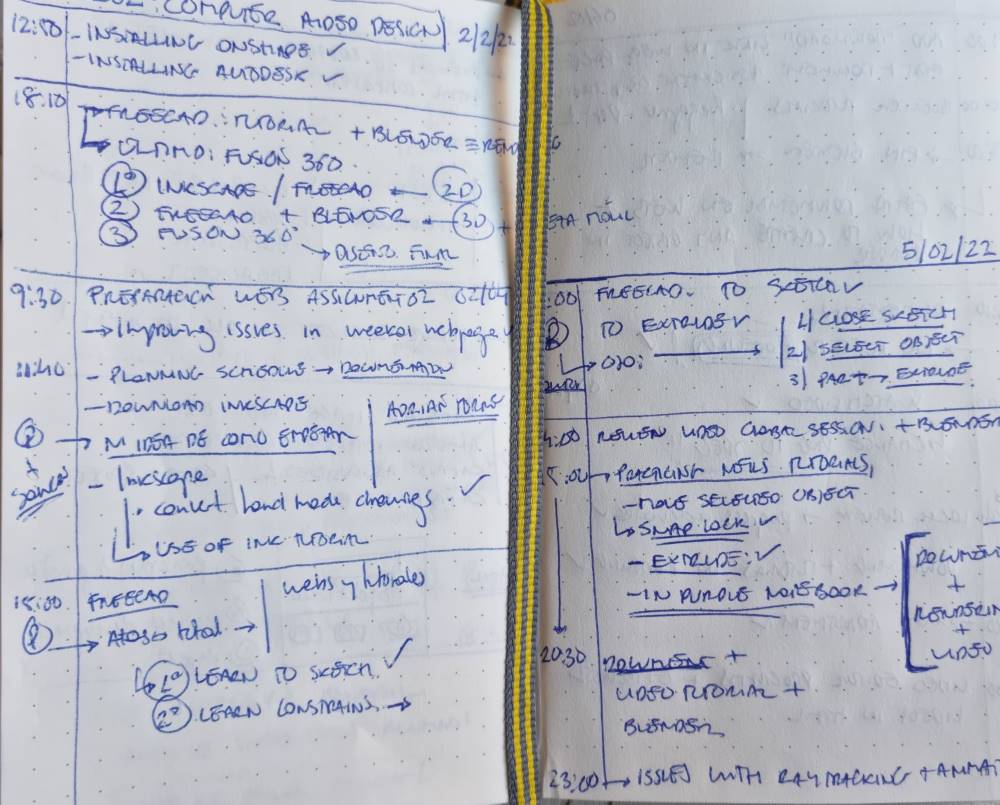 COMPUTER AIDED DESIGN | 2/2/22
12:50 - INSTALLING ONSHAPE ✓
- INSTALLING AUTODESK ✓
18:10
→ FREECAD: TUTORIAL + BLENDER
→ ÚLTIMO: FUSION 360.
1º INKSCAPE / FREECAD ← 2D
2 FREECAD + BLENDER ← 3D +
3 FUSION 360
→ DISEÑO FINAL
9:30 PREPARACIÓN WEB ASSIGNMENT 02
→ Improving issues in week01 webpage
11:40 - PLANNING SCHEDULE → DOCUMENTATION
- DOWNLOAD INKSCAPE
ADRIÁN TORRES
→ NI IDEA DE COMO EMPEZAR
- Inkscape
• convert hand made drawings. ✓
→ USE OF INK TUTORIAL
FREECAD
webs y tutoriales
→ Atasco total →
1º LEARN TO SKETCH. ✓
2º LEARN CONSTRAINS. →
5/02/22
:00 FREECAD. TO SKETCH ✓
TO EXTRUDE ✓
1) CLOSE SKETCH
→ OJO: → 2) SELECT OBJECT
3) PART → EXTRUDE
4:00 REVIEW VIDEO GLOBAL SESSION: + BLENDER
5:00 → PRACTICING NEILS TUTORIALS,
- MOVE SELECTED OBJECT
→ SNAP LOCK ✓
- EXTRUDE: ✓
- IN PURPLE NOTEBOOK →
DOCUMENT
+
RENDERIN
+
VIDEO
20:30 DOCUMENT +
VIDEO TUTORIAL +
BLENDER
23:00 → ISSUES WITH RAYTRACKING + ANIMATI